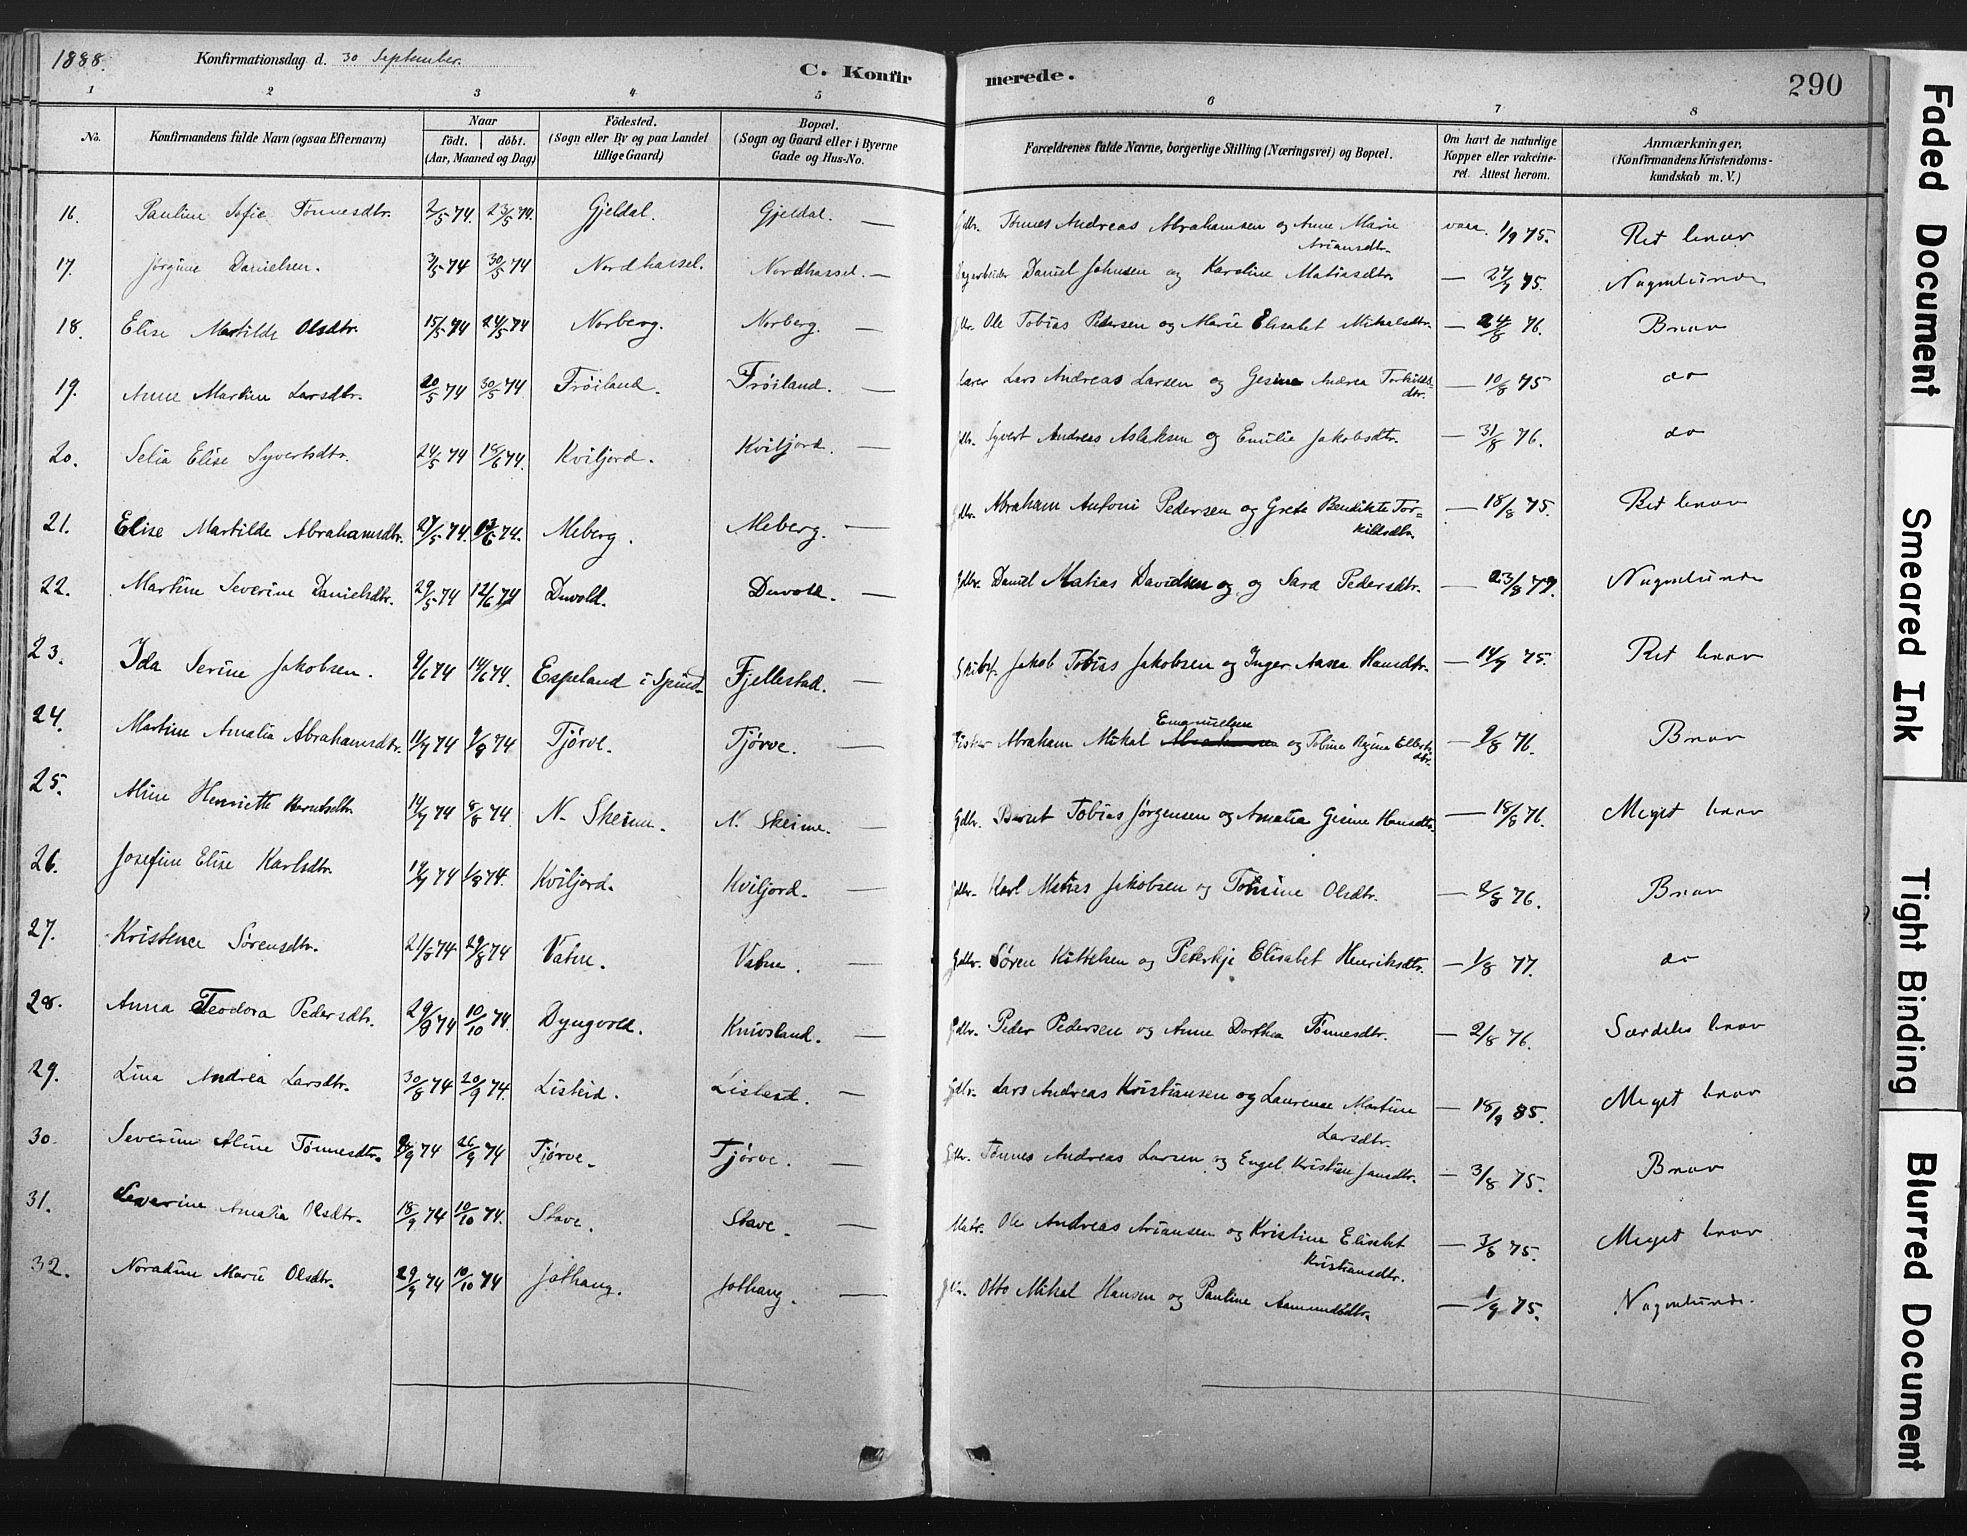 1888. Konfirmationsdag d. 30 September. C. Konfirmerede. 290
1 2 3 4 5 6 7 8
No. Konfirmandens fulde Navn (ogsaa Efternavn) Naar födt. döbt. (Aar, Maaned og Dag) Födested. (Sogn eller By og paa Landet tillige Gaard) Bopæl. (Sogn og Gaard eller i Byerne Gade og Hus-No. Forældrenes fulde Navne, borgerlige Stilling (Næringsvei) og Bopæl. Om havt de naturlige Kopper eller vakcineret. Attest herom. Anmærkninger, (Konfirmandens Kristendomskundskab m. V.)
16. Pauline Sofie Tønnesdtr. 2/5 74. 23/5 74. Gjeldal. Gjeldal. — Gdbr. Tønnes Andreas Abrahamsen og Anne Marie Ariansdtr. vacc. 1/9 75. Ret brav
17. Jørgine Danielsen. 3/5 74 30/5 74 Nordhassel. Nordhassel. — Daniel Johnsen og Karoline Matiasdtr — 27/9 75. Nogenlunde
18. Elise Martilde Olsdtr. 15/5 74 24/5 74 Norberg. Norberg. — Ole Tobias Pedersen og Marie Elisabet Mikalsdtr. — 24/8 76. Brav
19. Anne Martine Larsdtr. 20/5 74 30/5 74 Frøiland. Frøiland. — Lars Andreas Larsen og Gesine Andrea Torkildsdtr. — 10/8 75 do
20. Selia Elise Syvertsdtr. 24/5 74 18/6 74. Kviljord. Kviljord. — Gdbr. Syvert Andreas Aslaksen og Emilie Jakobsdtr. — 31/8 76. do
21. Elise Martilde Abrahamsdtr. 27/5 74. 17/6 74. Meberg. Meberg. — Gdbr. Abraham Antoni Pedersen og Grete Bendikte Torkildsdtr. — 18/8 75. Ret brav
22. Martine Severine Danielsdtr. 29/5 74 12/6 74 Duvold. Duvold. — Gdbr. Daniel Matias Davidsen og og Sara Pedersdtr. — 23/8 79. Nogenlunde
23. Ida Serine Jakobsen. 9/6 74 14/6 74. Espeland i Spind. Fjellestad. — Jakob Tobias Jakobsen og Inger Aasa Hansdtr. — 14/9 75. Ret brav
24. Martine Amalia Abrahamsdtr. 11/7 74 9/8 74 Tjørve. Tjørve. — Fisker Abraham Mikal Emanuelsen og Tobine Regine Ellertsdtr. — 9/8 76. Brav
25. Aline Henriette Berntsdtr. 14/7 74 8/8 74. N. Skeime. N. Skeime. — Gdbr. Bernt Tobias Jørgensen og Amalia Gesine Hansdtr. — 18/8 76. Meget brav
26. Josefine Elise Karlsdtr. 19/7 74 1/8 74. Kviljord. Kviljord. — Gdbr. Karl Matias Jakobsen og Tobine Olsdtr. — 2/8 76. Brav
27. Kristence Sørensdtr. 21/8 74. 29/8 74 Vatne. Vatne. — Gdbr. Søren Kittelsen og Peterkje Elisabet Henriksdtr. — 1/8 77. do
28. Anna Teodora Pedersdtr. 29/8 74 10/10 74. Dyngvold. Knivsland. — Gdbr. Peder Pedersen og Anne Dorthea Tønnesdtr. — 2/8 76. Særdeles brav
29. Lina Andrea Larsdtr. 30/8 74 20/9 74. Listeid. Listeid. — Gdbr. Lars Andreas Kristiansen og Laurense Martine Larsdtr. — 18/9 85. Meget brav
30. Severine Aline Tønnesdtr. 9/9 74 26/9 74 Tjørve. Tjørve. — Gdbr. Tønnes Andreas Larsen og Engel Kristine Jansdtr. — 3/8 75. Brav
31. Severine Amalia Olsdtr. 18/9 74 10/10 74. Stave. Stave. — Matr. Ole Andreas Ariansen og Kristine Elisabet Kristiansdtr. — 3/8 75. Meget brav
32. Noradine Marie Olsdtr. 29/9 74 10/10 74 Jølhang. Jølhang. — Otto Mikal Hansen og Pauline Aamundsdtr. — 1/9 75. Nogenlunde.
Faded Document
Smeared Ink
Tight Binding
Blurred Document